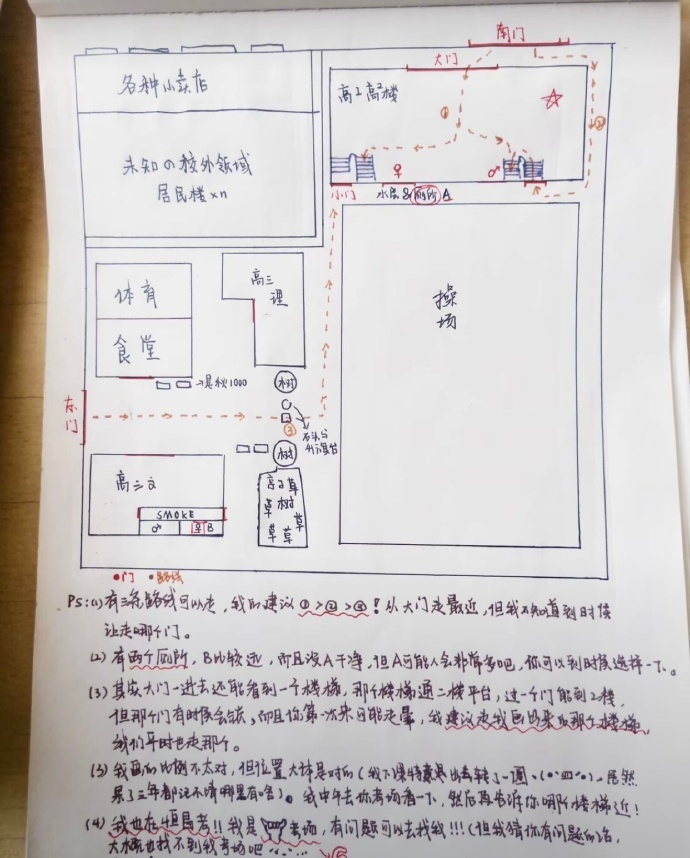 南门
大门
各种小卖店
高二高一楼
①
②
未知の校外领域
居民楼xn
♀
♂
小门
水房&厕所A
体育
食堂
高三
理
操
场
树
东
门
③
石头与
树
高三文
SMOKE
♂
♀B
草
树
草
草
草
草
●门 ●路线
PS:(1)有三条路线可以走,我的建议①>②>③!从大门走最近,但我不知道到时候
让走哪个门。
(2)有两个厕所,B比较远,而且没A干净,但A可能人会非常多吧,你可以到时候选择一下。
(3)其实大门一进去还能看到一个楼梯,那个楼梯通二楼平台,过一个门能到2楼,
但那个门有时候会锁,而且你第一次来可能走晕,我建议走我画出来的那个楼梯,
我们平时也走那个。
(3)我画的比例不太对,但位置大体是对的(我下课特意出去转了一圈,居然
呆了三年都记不清哪里有啥)。我中午去你考场看一下,然后再告诉你哪个楼梯近!
(4)我也在恒昌考!!我是考场,有问题可以去找我!!!(但我猜你有问题的话,
大概也找不到我考场吧